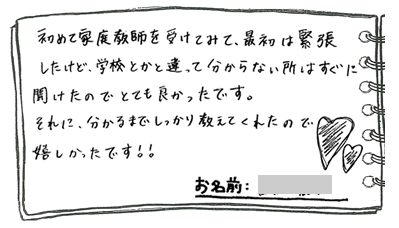 初めて家庭教師を受けてみて、最初は緊張
したけど、学校とかと違って分からない所はすぐに
聞けたのでとても良かったです。
それに、分かるまでしっかり教えてくれたので
嬉しかったです!!
お名前: